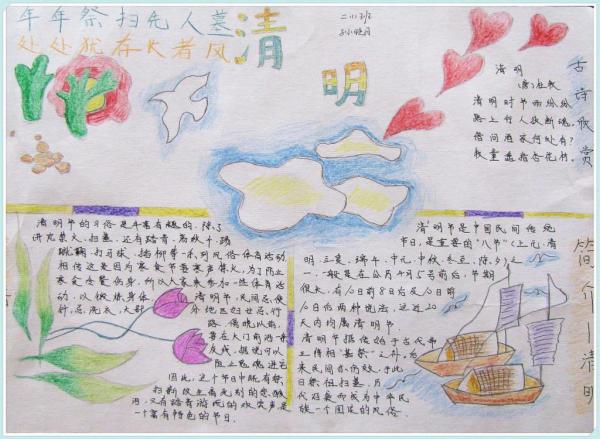 年年祭扫先人墓
处处犹存长者风
清明
二(1)班
孙晓月
古诗欣赏
清明
(唐)杜牧
清明时节雨纷纷
路上行人欲断魂。
借问酒家何处有?
牧童遥指杏花村。
清明节的习俗是丰富有趣的。除了
讲究禁火、扫墓,还有踏青、荡秋千、踢
蹴鞠、打马球、插柳等一系列风俗体育活动
相传这是因为寒食节要寒食禁火,为了防止
寒食冷餐伤身,所以大家来参加一些体育活
动,以锻炼身体。清明节,民间忌使
针,忌洗衣,大部
分地区妇女忌行
路。傍晚以前,
要在大门前洒一条
灰线,据说可以
阻止鬼魂进宅
因此,这个节日中既有祭
扫新坟生离死别的悲酸
泪,又有踏青游玩的欢笑声,是
一个富有特色的节日。
简介—清明
清明节是中国民间传统
节日,是重要的“八节”(上元、清
明、立夏、端午、中元、中秋、冬至、除夕)之
一,一般是在公历4月5号前后,节期
很长,有10日前8日后及10日前
10日后两种说法,这近20
天内均属清明节。
清明节据传始于古代帝
王将相“墓祭”之礼,后
来民间亦仿效,于此
日祭祖扫墓,历
代沿袭而成为中华民
族一个固定的风俗。